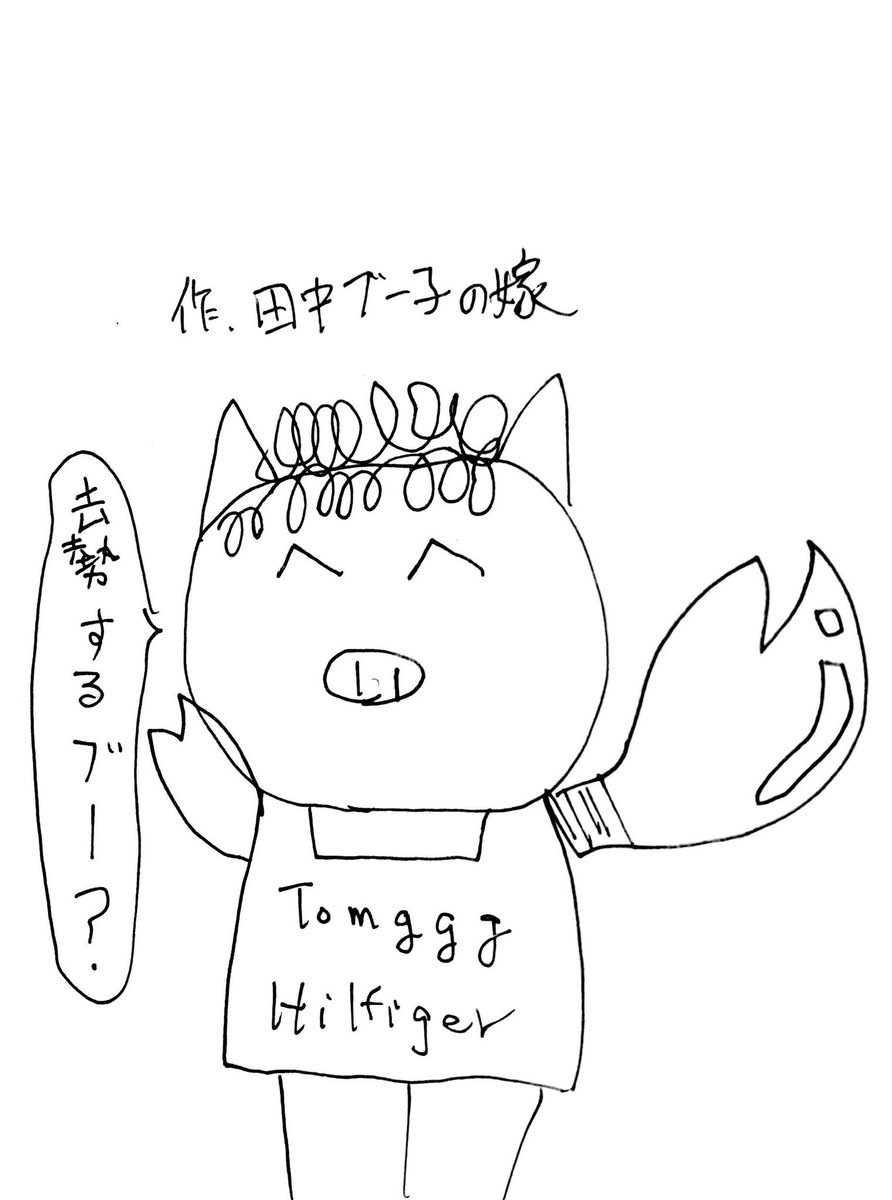 作.田中ブー子の嫁
去勢するブー?
Tomggg
Hilfiger